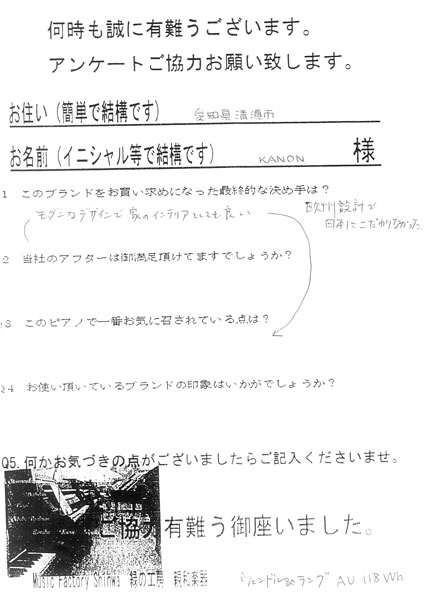 何時も誠に有難うございます。
アンケートご協力お願い致します。
お住い（簡単で結構です） 愛知県清須市
お名前（イニシャル等で結構です） KANON 様
1 このブランドをお買い求めになった最終的な決め手は？
モダンなデザインで家のインテリアとしても良い
欧州設計で
日本にこだわりなかった
2 当社のアフターは御満足頂けてますでしょうか？
3 このピアノで一番お気に召されている点は？
4 お使い頂いているブランドの印象はいかがでしょうか？
Q5.何かお気づきの点がございましたらご記入くださいませ。
ご協力有難う御座いました。
Music Factory Shinwa 緑の工房 親和楽器
AU 118 Wh